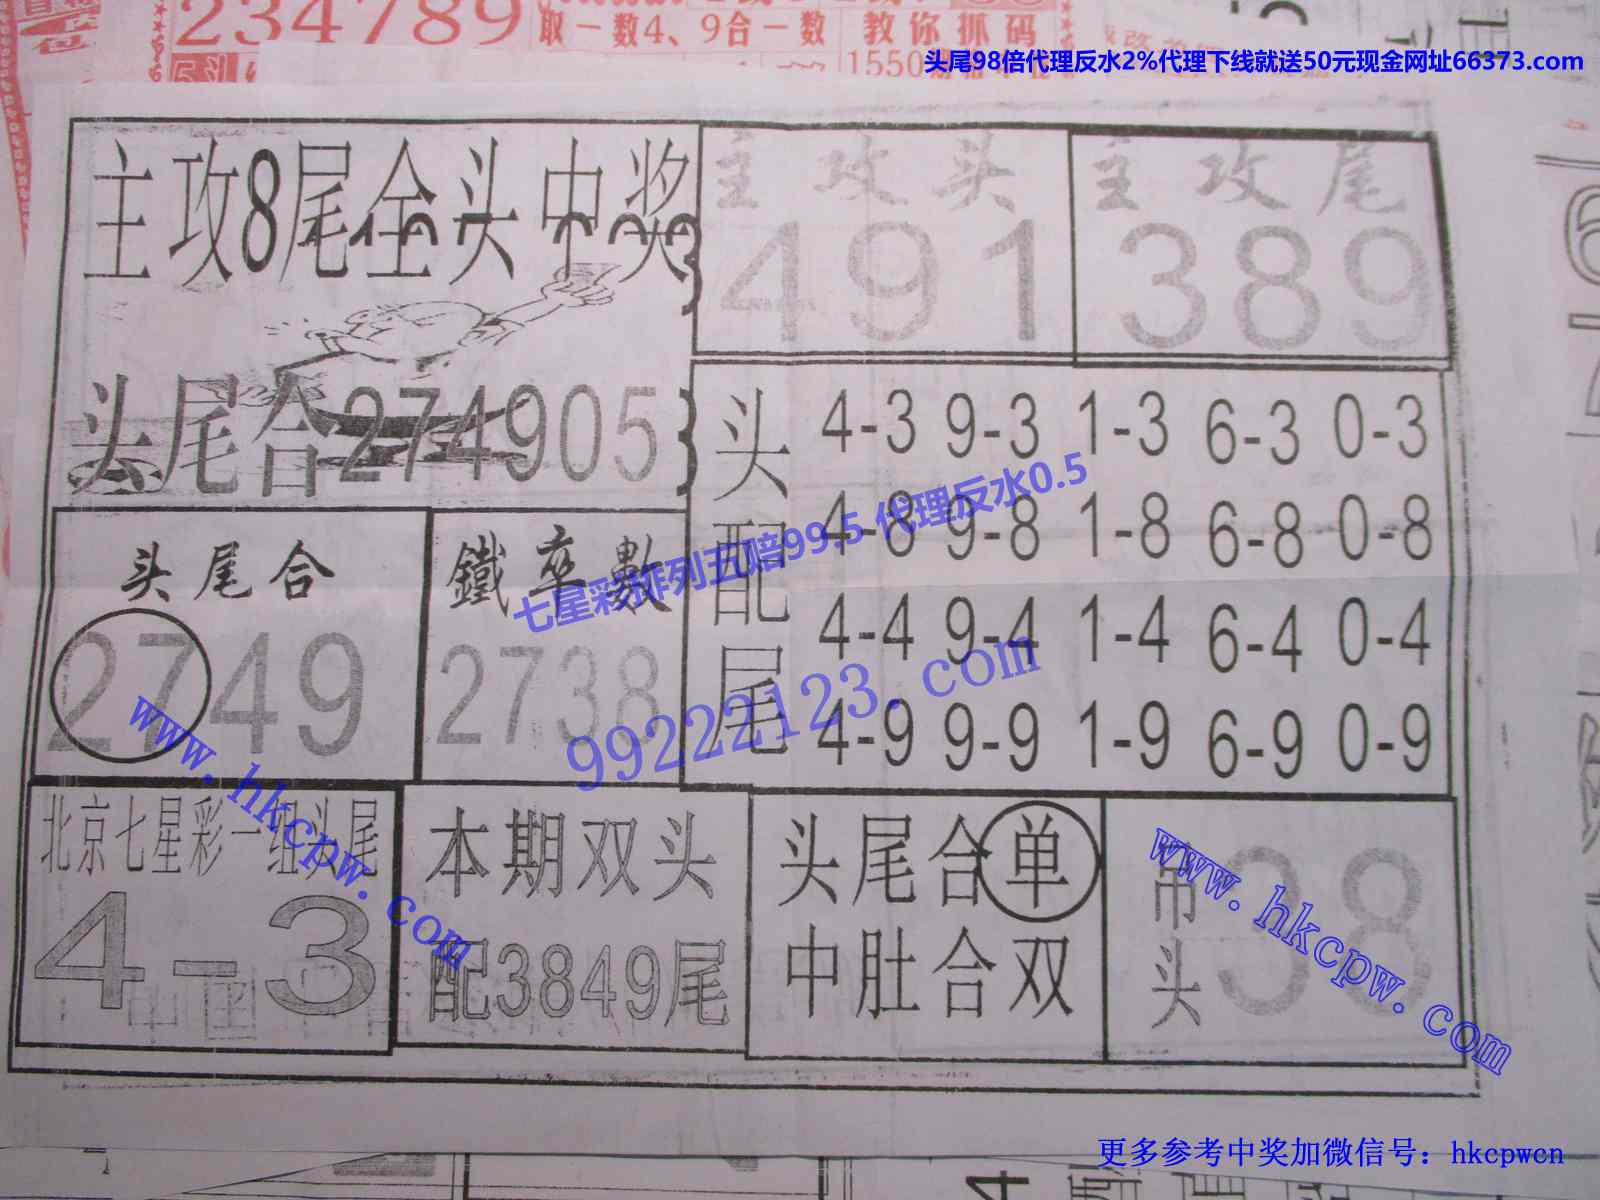 234789
取一数4、9合一数 教你抓码
1550
头尾98倍代理反水2%代理下线就送50元现金网址66373.com
主攻8尾全头中奖
主攻头
491
主攻尾
389
头尾合274905
头配尾
4-3 9-3 1-3 6-3 0-3
4-8 9-8 1-8 6-8 0-8
4-4 9-4 1-4 6-4 0-4
4-9 9-9 1-9 6-9 0-9
七星彩排列五赔99.5 代理反水0.5
99222123.com
头尾合
2749
鐵卒數
2738
www.hkcpw.com
北京七星彩一组头尾
4-3
本期双头
配3849尾
头尾合单
中肚合双
吊头
38
www.hkcpw.com
更多参考中奖加微信号：hkcpwcn